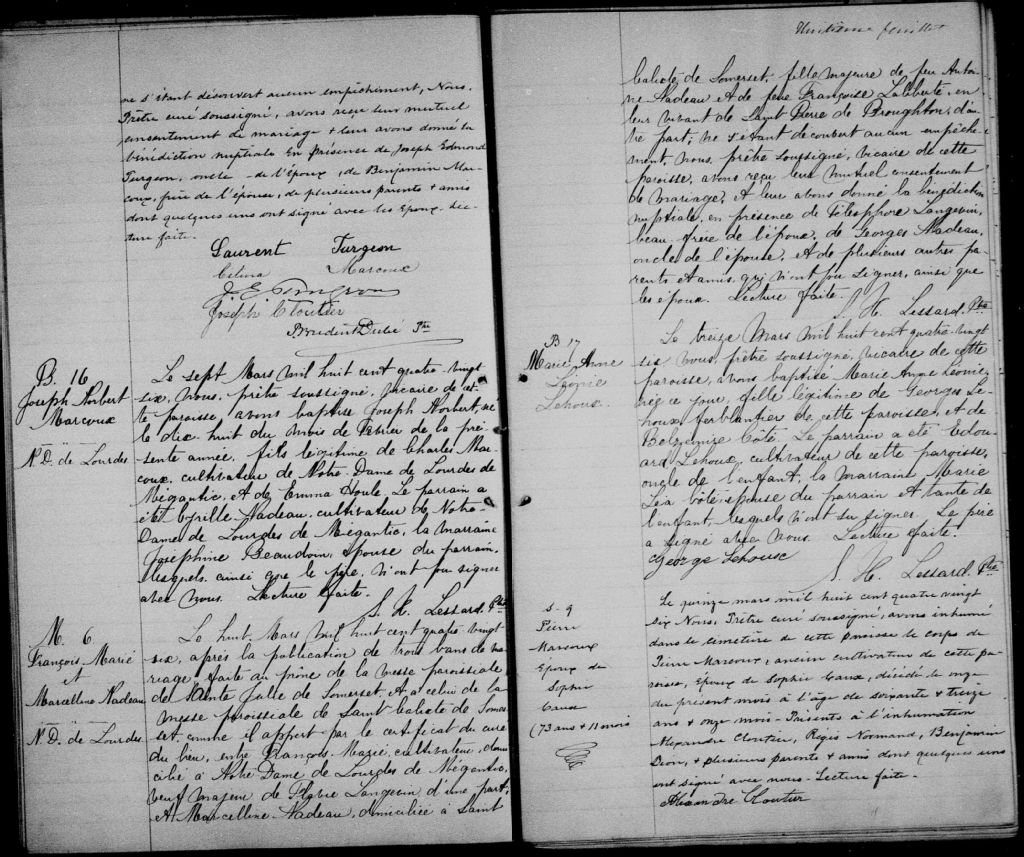 ne s'étant découvert aucun empêchement, Nous,
Prêtre curé soussigné, avons reçu leur mutuel
consentement de mariage & leur avons donné la
bénédiction nuptiale En présence de Joseph Edmond
Turgeon, oncle de l'époux, de Benjamin Mar-
coux, père de l'épouse, de plusieurs parents & amis
dont quelques uns ont signé avec les Epoux. Lec-
ture faite.
Laurent Turgeon
Célina Marcoux
J. E. Turgeon
Joseph Cloutier
Prudent Dubé Ptre
B. 16
Joseph Norbert
Marcoux
N. D. de Lourdes
Le sept Mars mil huit cent quatre-vingt
six, Nous, prêtre soussigné, vicaire de cet-
te paroisse, avons baptisé Joseph Norbert, né
le dix huit du mois de Février de la pré-
sente année, fils légitime de Charles Mar-
coux, cultivateur de Notre-Dame de Lourdes de
Mégantic, et de Emma Houle. Le parrain a
été Cyrille Nadeau, cultivateur de Notre-
Dame de Lourdes de Mégantic, la marraine
Joséphine Beaudoin, épouse du parrain,
lesquels, ainsi que le père, n'ont pu signer
avec nous. Lecture faite.
J. H. Lessard. Ptre
M. 6
François Marié
et
Marcelline Nadeau
N. D. de Lourdes
Le huit Mars mil huit cent quatre-vingt
six, après la publication de trois bans de ma-
riage faite au prône de la messe paroissiale
de Sainte Julie de Somerset, et à celui de la
messe paroissiale de Saint Calixte de Somer-
set, comme il appert par le certificat du curé
du lieu, entre François Marié, cultivateur, domi-
cilié à Notre Dame de Lourdes de Mégantic,
veuf majeur de Flavie Langevin d'une part;
et Marcelline Nadeau, domiciliée à Saint
Huitième feuillet
Calixte de Somerset, fille majeure de feu Antoi-
ne Nadeau et de feue Françoise Laliberté, en
leur vivant de Saint Pierre de Broughton, d'au-
tre part; ne s'étant découvert aucun empêche-
ment, nous, prêtre soussigné, vicaire de cette
paroisse, avons reçu leur mutuel consentement
de mariage, et leur avons donné la bénédiction
nuptiale, en présence de Télesphore Langevin,
beau-frère de l'époux, de Georges Nadeau,
oncle de l'épouse, et de plusieurs autres pa-
rents et amis qui n'ont pu signer, ainsi que
les époux. Lecture faite.
J. H. Lessard. Ptre
B 17
Marie Anne
Léonie
Lehoux
Le treize Mars mil huit cent quatre-vingt
six, nous, prêtre soussigné, vicaire de cette
paroisse, avons baptisé Marie Anne Léonie,
née ce jour, fille légitime de Georges Le-
houx, ferblantier de cette paroisse, et de
Côté. Le parrain a été Edou-
ard Lehoux, cultivateur de cette paroisse,
oncle de l'enfant, la marraine Marie
Léa Côté, épouse du parrain et tante de
l'enfant, lesquels n'ont su signer. Le père
a signé avec nous. Lecture faite.
George Lehoux
J. H. Lessard. Ptre
S- 9
Pierre
Marcoux
Epoux de
Sophie
Caux
(73 ans & 11 mois
Le quinze mars mil huit cent quatre vingt
six Nous, Prêtre curé soussigné, avons inhumé
dans le cimetière de cette paroisse le corps de
Pierre Marcoux, ancien cultivateur de cette pa-
roisse, Epoux de Sophie Caux, décédé le onze
du présent mois à l'âge de soixante & treize
ans & onze mois. Présents à l'inhumation
Alexandre Cloutier, Régis Normand, Benjamin
Dion, & plusieurs parents & amis dont quelques uns
ont signé avec nous. Lecture faite.
Alexandre Cloutier